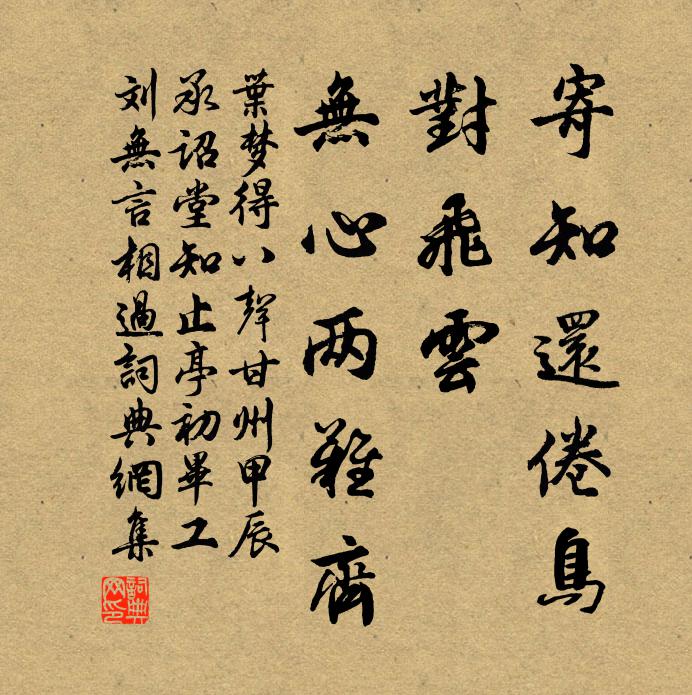 寄知還倦鳥
對飛雲
無心两難齊
葉梦得八聲甘州甲辰
承詔堂知止亭初畢工
刘無言相過詞典網集
詞典网印